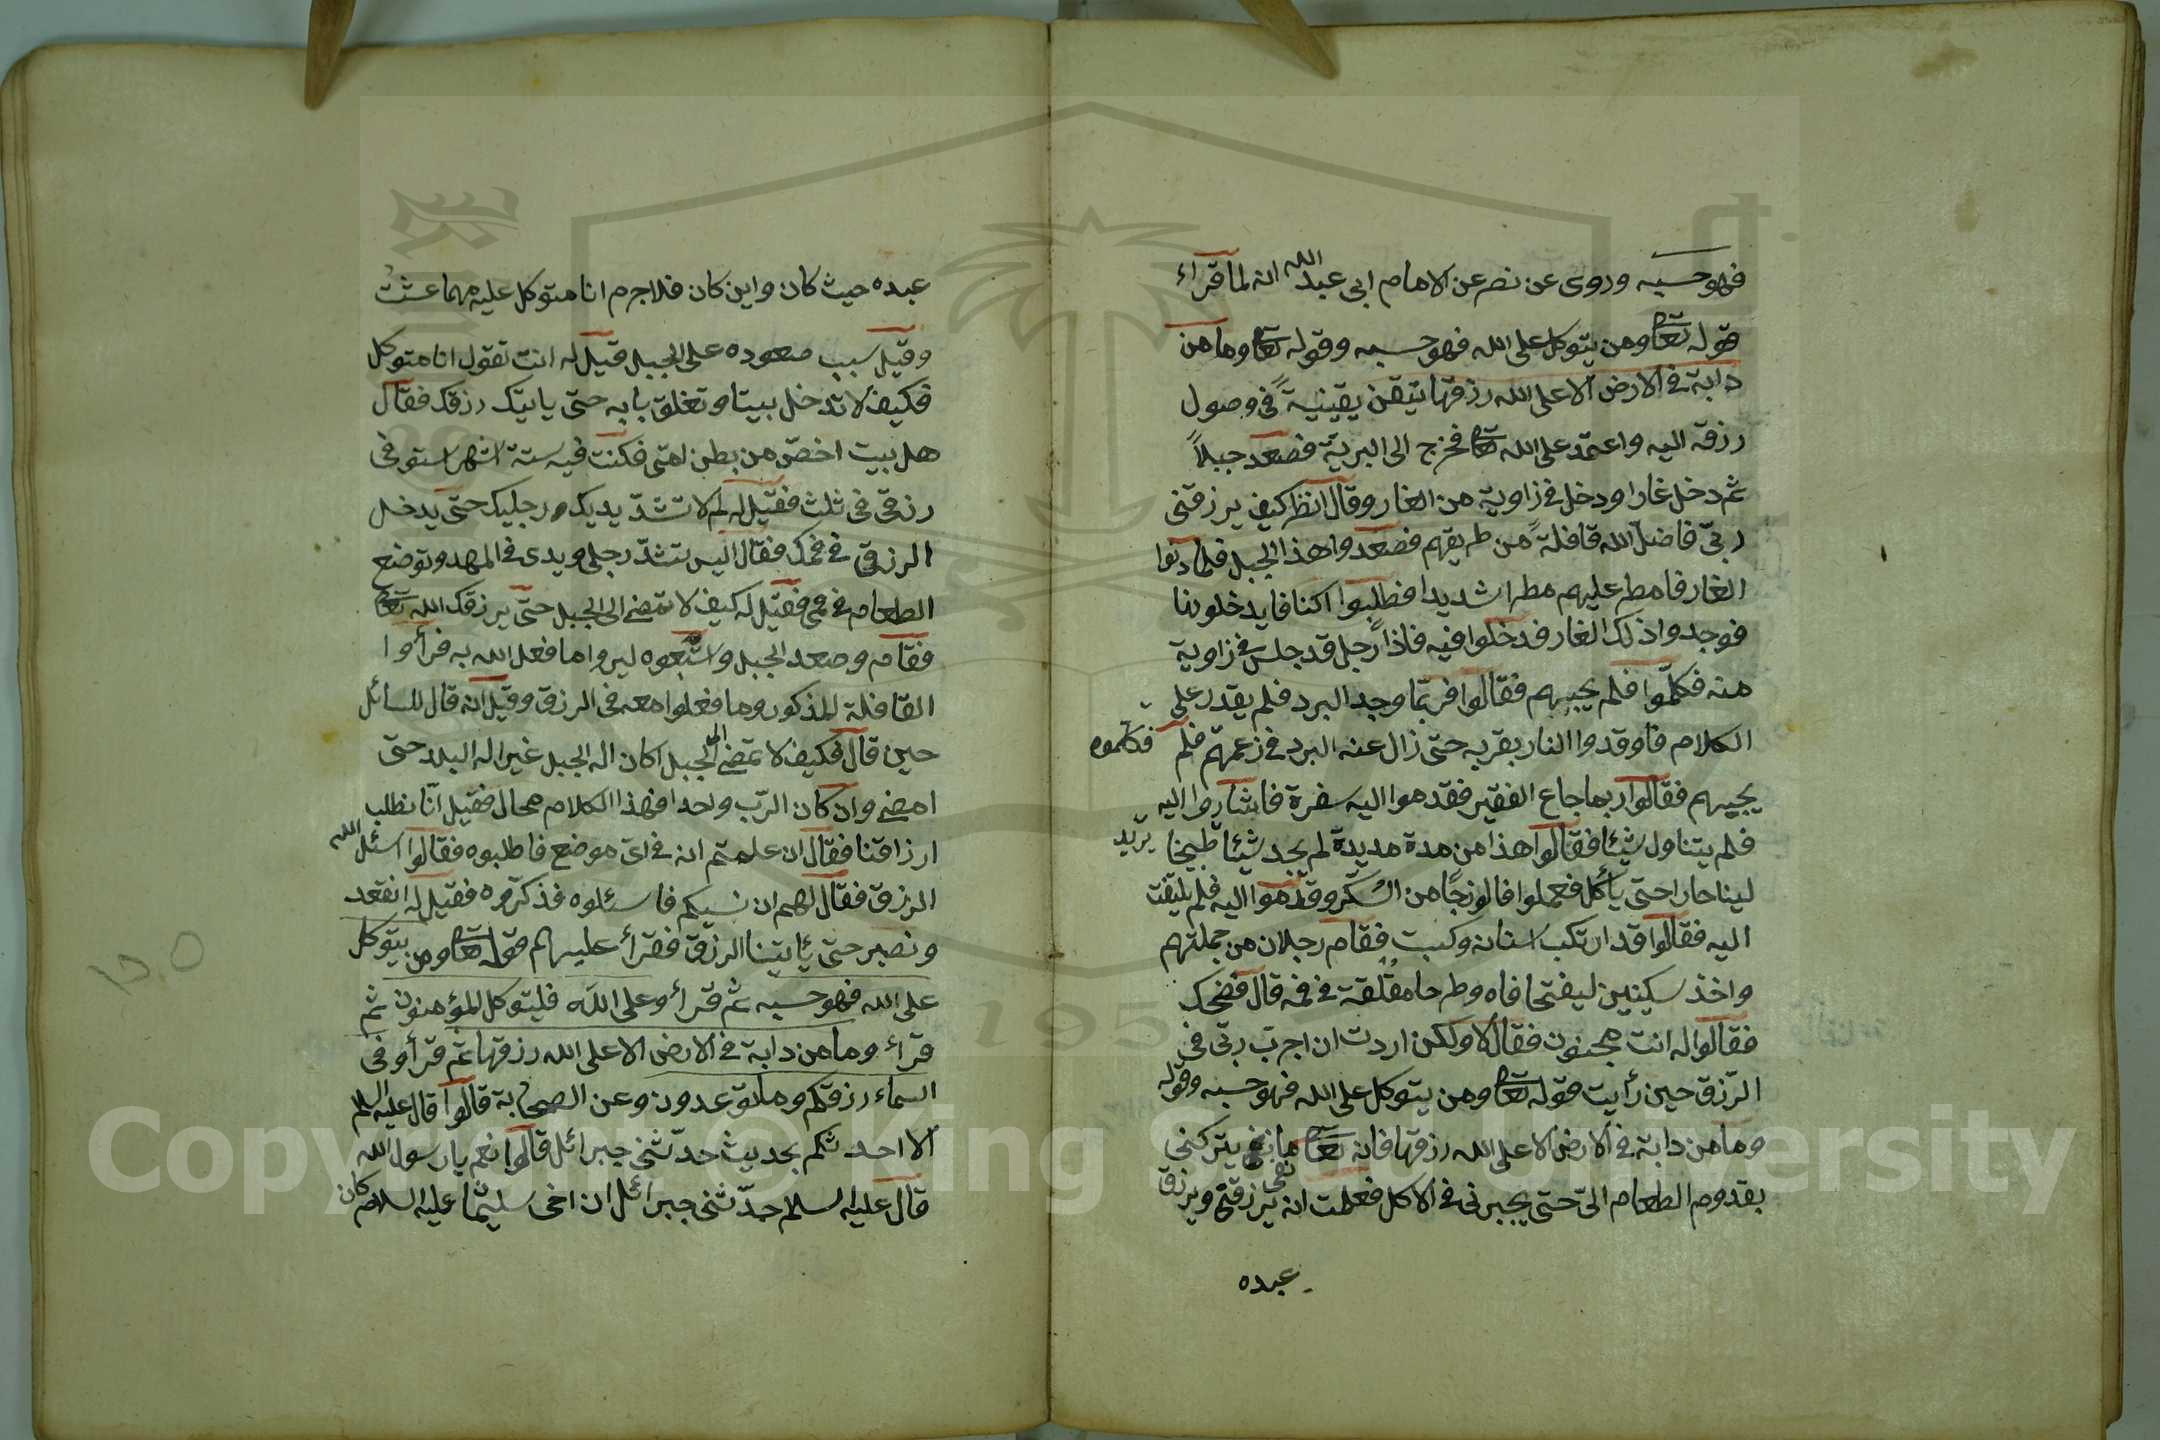 فهو حسبه وروى عن نصر عن الامام ابى عبد الله انه لما قراء
قوله تعا ومن يتوكل على الله فهو حسبه وقوله تعا وما من
دابة فى الارض الا على الله رزقها تيقن يقينيةً فى وصول
رزقه اليه واعتمد على الله تعا فخرج الى البريّة فصعد جبلاً
ثم دخل غارا ودخل فى زاوية من الغار وقال انظر كيف يرزقنى
ربّى فاضلّ الله قافلةً من طريقهم فصعدوا هذا الجبل فلما
الغار فامطر عليهم مطرا شديدا فطلبوا اكنافا يدخلونها
فوجدوا ذلك الغار فدخلوا فيه فاذا رجل قد جلس فى زاوية
منه فكلّموا فلم يجيبهم فقالوا فربّما وجد البرد فلم يقدر على
الكلام فاوقدوا النار بقربه حتى زال عنه البرد فى زعمهم فلم فكلموه
يجيبهم فقالوا ربما جاع الفقير فقدموا اليه سفرة فاشاروا اليه
فلم يتناول شيئا فقالوا هذا من مدة مديدة لم يجد شيئا طبيخا يريد
لينا حارا حتى يأكل فعملوا فالوزجًا من السّكّر وقدّموا اليه فلم يلتفت
اليه فقالوا قد ارتكب اسنانه وكبت فقام رجلان من جملتهم
واخذ سكينين ليفتحا فاه وطرحا ملقة فى فمه قال فضحك
فقالوا له انت مجنون فقال لا ولكن اردت ان اجرب ربى فى
الرّزق حين رأيت قوله تعا ومن يتوكل على الله فهو حسبه وقوله
وما من دابة فى الارض الا على الله رزقها فانه تعا ما يتركنى
بقدوم الطعام الىّ حتى يجبرنى فى الاكل فعلمت انه يرزقنى ويرزق
عبده
عبده حيث كان واين كان فلاجرم انا متوكل عليه مهما عشت
وقيل سبب صعوده على الجبل قيل له انت تقول انا متوكل
فكيف لا تدخل بيتا وتغلق بابه حتى ياتيك رزقك فقال
هل بيت اخصّ من بطن امّى فكنت فيه ستة اشهر استوفى
رزقى فى ثلث فقيل له لم لا تشدّ يديك ورجليك حتى يدخل
الرزق فى فمك فقال اليس تشدّ رجلى ويدى فى المهد وتوضع
الطعام فى فمى فقيل له كيف لا تمضى الى الجبل حتى يرزقك الله تعا
فقام وصعد الجبل واتّبعوه ليروا ما فعل الله به فرأوا
القافلة المذكور وما فعلوا معه فى الرزق وقيل انه قال للسائل
حين قال فكيف لا تمضى الى الجبل اكان اله الجبل غير اله البلد حتى
امضى وان كان الربّ واحدا فهذا الكلام محال فقيل انّا نطلب
ارزاقنا فقال ان علمتم انه فى اىّ موضع فاطلبوه فقالوا اسئل الله
الرزق فقال لهم ان نسيكم فاسئلوه فذكّروه فقيل له انقعد
ونصبر حتى يأتينا الرزق فقرأ عليهم قوله تعا ومن يتوكل
على الله فهو حسبه ثم قرأ وعلى الله فليتوكل المؤمنون ثم
قراء وما من دابة فى الارض الا على الله رزقها ثم قرأ وفى
السماء رزقكم وما توعدون وعن الصحابة قالوا قال عليه السلم
الا احدثكم بحديث حدّثنى جبرائل قالوا نعم يا رسول الله
قال عليه السلم حدّثنى جبرائل ان اخى سليمان عليه السلام كان
Copyright © King Saud University
1957